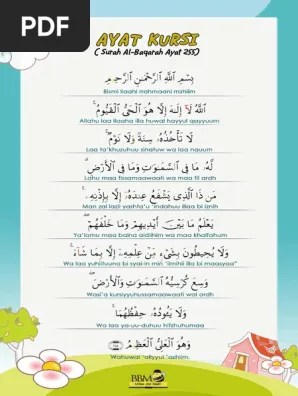 PDF
AYAT KURSI
( Surah Al-Baqarah Ayat 255)
بِسْمِ اللَّهِ الرَّحْمَنِ الرَّحِيمِ
Bismi llaahi rrahmaani rrahiim
اللَّهُ لَا إِلَهَ إِلَّا هُوَ الْحَيُّ الْقَيُّومُ ۚ
Allahu laa ilaaha illa huwal hayyul qayyuum
لَا تَأْخُذُهُ سِنَةٌ وَلَا نَوْمٌ ۚ
Laa ta'khuzuhuu sinatuw wa laa nauum
لَهُ مَا فِي السَّمَوَتِ وَمَا فِي الْأَرْضِ ۗ
Lahu maa fissamaawaati wa maa fil ardh
مَنْ ذَا الَّذِي يَشْفَعُ عِنْدَهُ إِلَّا بِإِذْنِهِ ۚ
Man zal lazii yashfa'u 'indahuu illaa bi iznih
يَعْلَمُ مَا بَيْنَ أَيْدِيهِمْ وَمَا خَلْفَهُمْ ۖ
Ya'lamu maa baina aidiihim wa maa khalfahum
وَلَا يُحِيطُونَ بِشَيْءٍ مِنْ عِلْمِهِ إِلَّا بِمَا شَاءَ ۚ
Wa laa yuhiituuna bi syai-in min 'ilmihii illa bi maasyaa'
وَسِعَ كُرْسِيُّهُ السَّمَوَتِ وَالْأَرْضَ ۖ
Wasi'a kursiyyuhussamaawaati wal ardh
وَلَا يَئُودُهُ حِفْظُهُمَا ۚ
Wa laa ya-uu-duhuu hifzhuhumaa
وَهُوَ الْعَلِيُّ الْعَظِيمُ
Wahuwal 'aliyyul 'azhim.
BBM